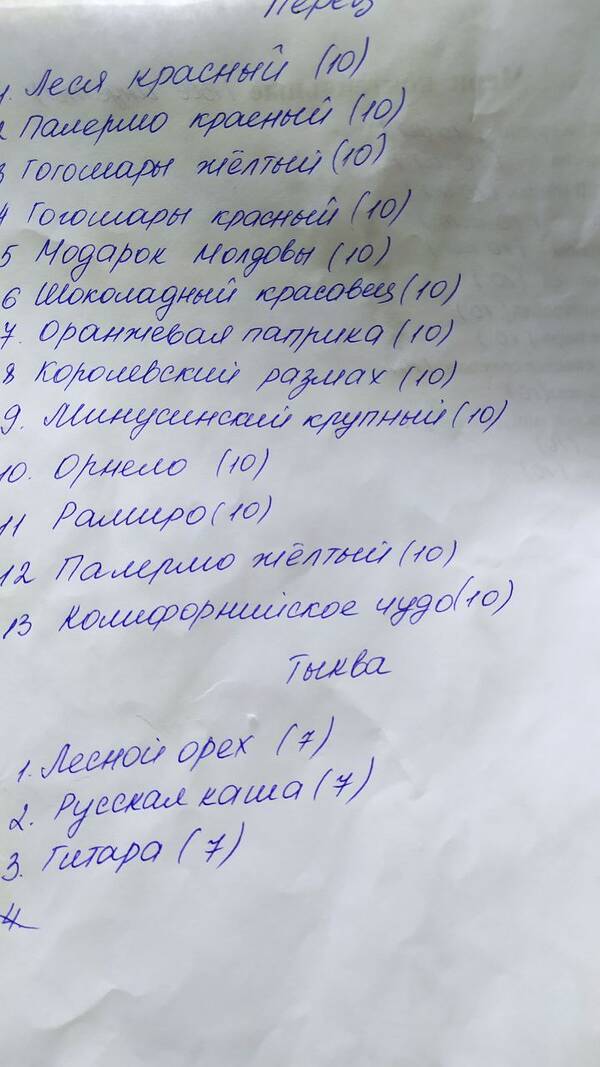 Перец
1. Леся красный (10)
2 Палермо красный (10)
3 Гогошары жёлтый (10)
4 Гогошары красный (10)
5 Подарок Молдовы (10)
6 Шоколадный красавец (10)
7. Оранжевая паприка (10)
8 Королевский размах (10)
9. Минусинский крупный (10)
10. Орнело (10)
11 Рамиро (10)
12 Палермо жёлтый (10)
13 Колифорнийское чудо (10)
Тыква
1. Лесной орех (7)
2. Русская каша (7)
3. Гитара (7)
4